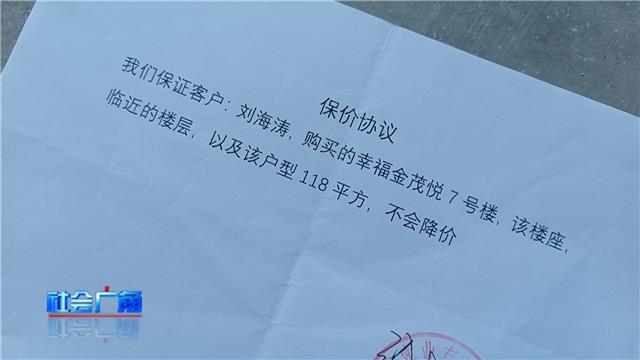 保价协议
我们保证客户：刘海涛，购买的幸福金茂悦7号楼，该楼座，
临近的楼层，以及该户型118平方，不会降价
社会广角